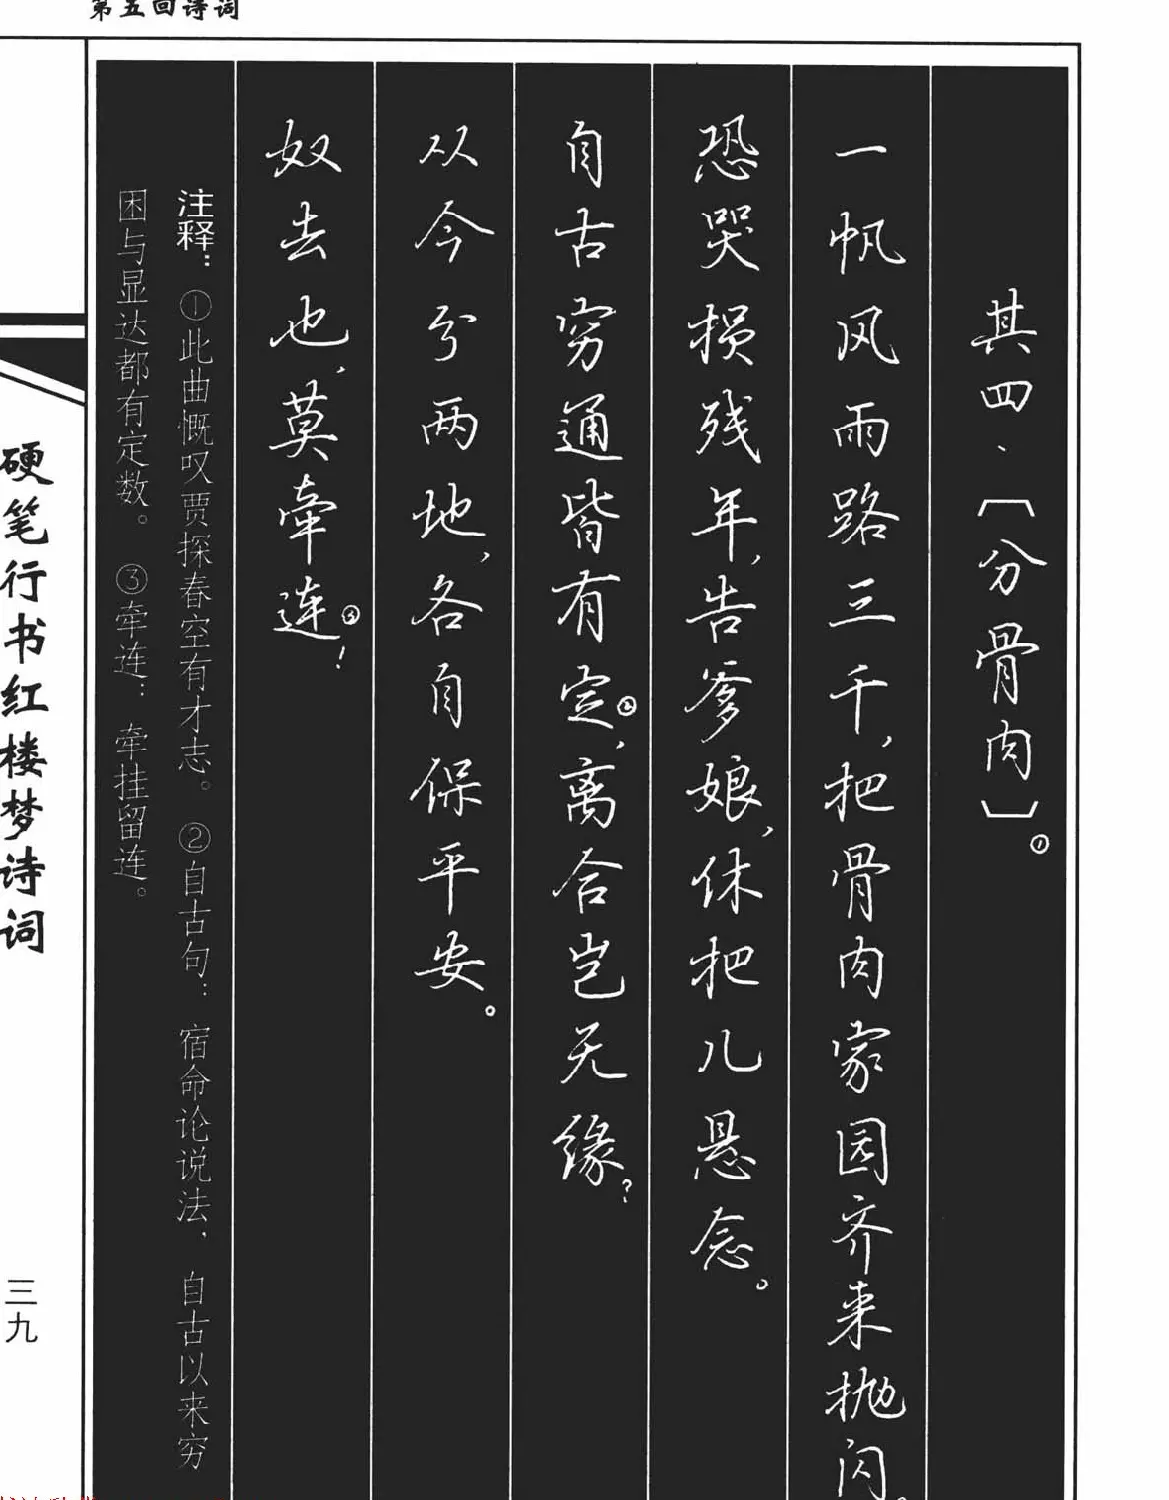 第五回诗词
其四、〔分骨肉〕①
一帆风雨路三千,把骨肉家园齐来抛闪。
恐哭损残年,告爹娘,休把儿悬念。
自古穷通皆有定②,离合岂无缘?
从今分两地,各自保平安。
奴去也,莫牵连③!
注释:①此曲慨叹贾探春空有才志。②自古句:宿命论说法,自古以来穷
困与显达都有定数。③牵连:牵挂留连。
硬笔行书红楼梦诗词
三九